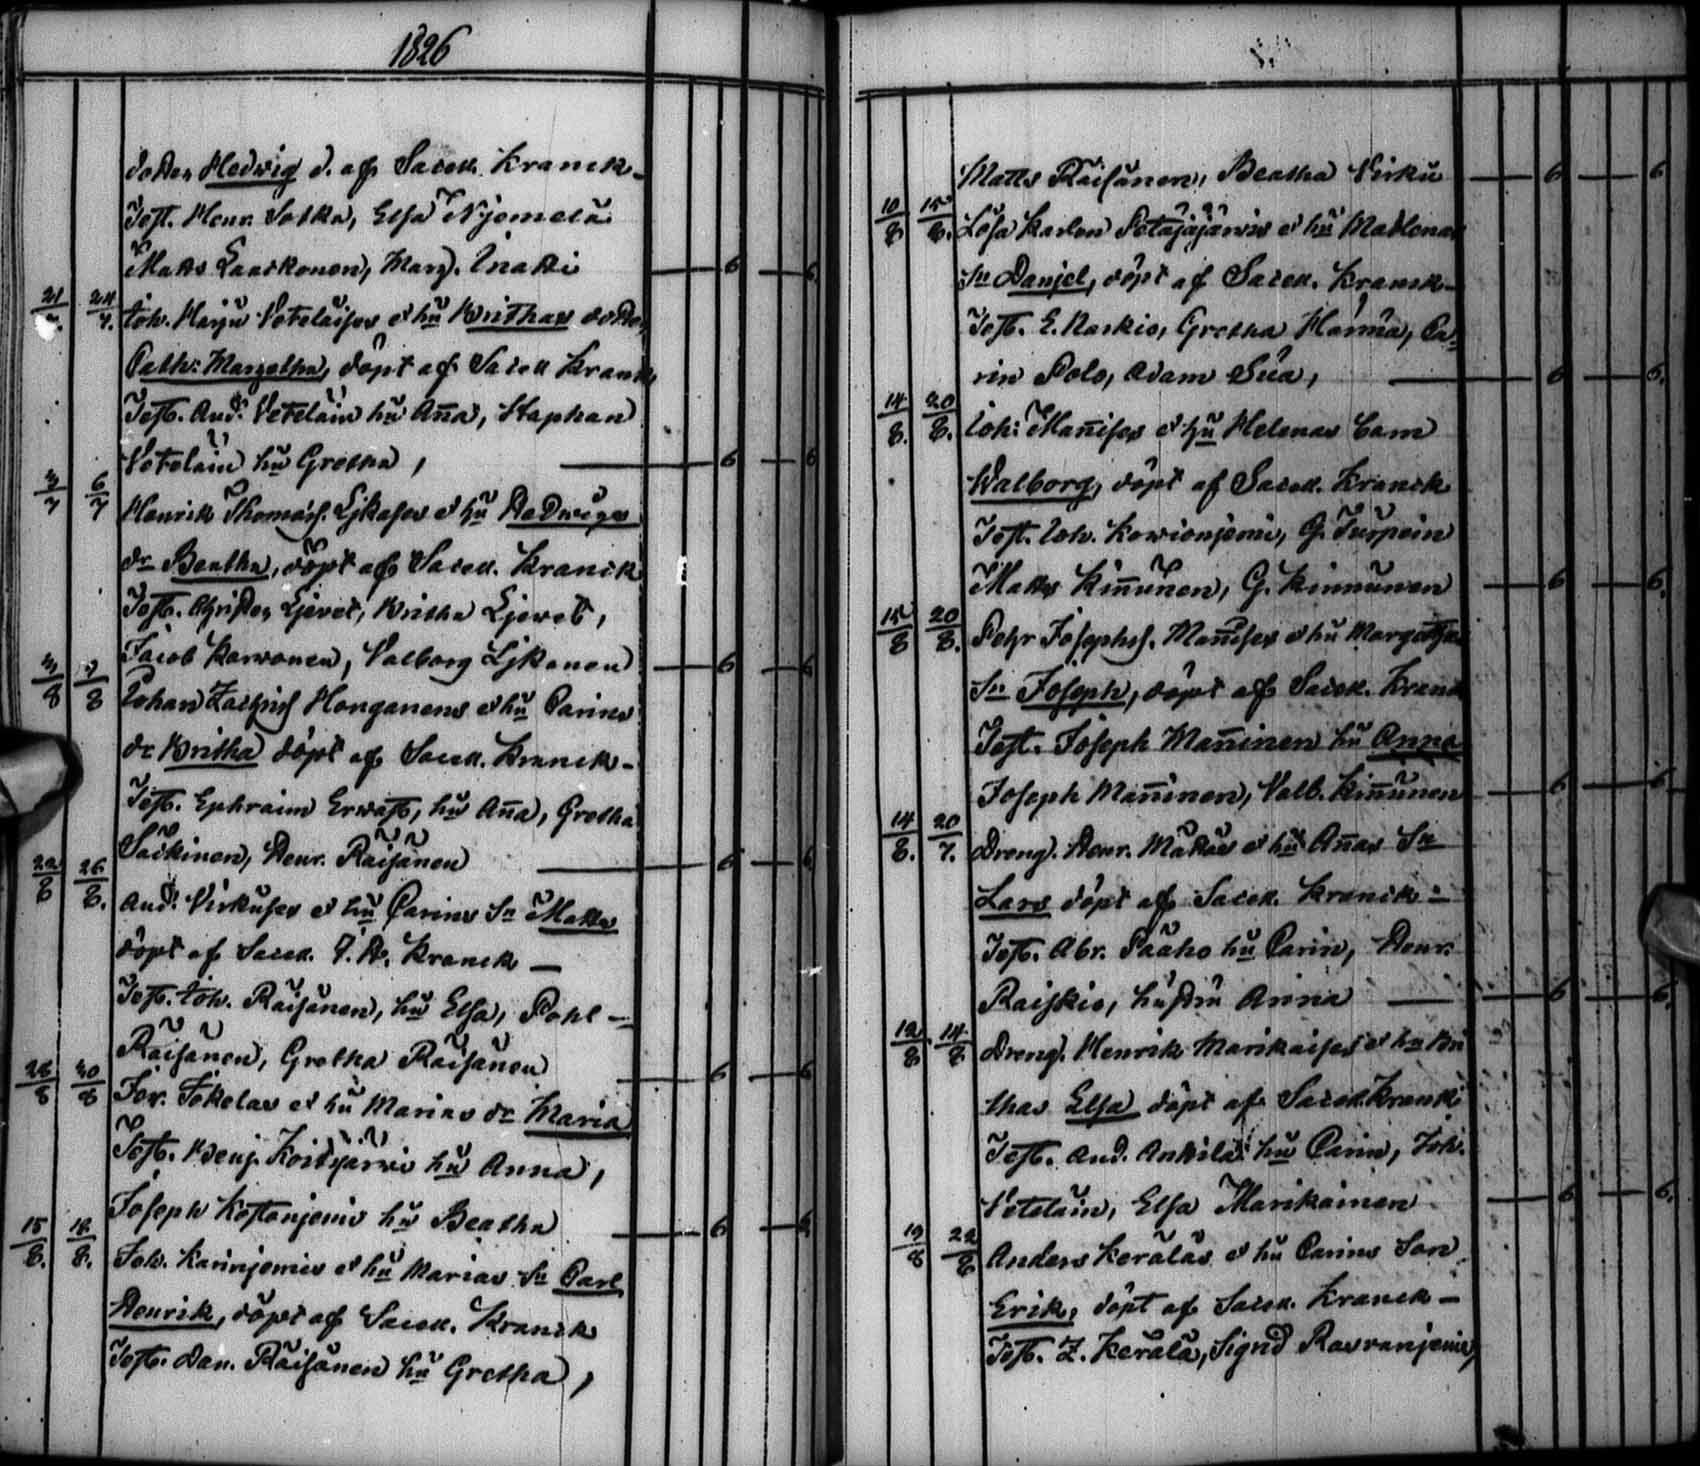 1826
dotter Hedwig d. af Sacell. Kranck-
Test. Henr. Sotka, Elsa Njemelä
Matts Laackonen, Marg. Inatti
21/7. 24/7. Joh. Harju Vetelaises et hu Brithas dotter
Cath: Margetha, döpt af Sacell Kranck
Test. And. Vetelain hu Aña, Staphan
Vetelain hu Gretha, — 6 — 6
3/7 6/7 Henrik Thomass. Ljkases et hu Hedwigs
dr Beatha, döpt af Sacell. Kranck
Test. Christer Ljevet, Britha Ljevet,
Jacob Karvonen, Valborg Ljkanen — 6 — 6
3/8 7/8 Johan Zachriss Honganens et hu Carins
dr Britha döpt af Sacell. Kranck-
Test. Ephraim Erwast, hu Aña, Gretha
Säckinen, Henr. Räisänen — 6 — 6
22/8 26/8. And. Virkuses et hu Carins Sn Matts
döpt af Sacell. J. H. Kranck —
Test. Joh. Räisänen, hu Elsa, Pohl —
Räisänen, Gretha Räisänen — 6 — 6
26/8 30/8 Jos. Jokelas et hu Marias dr Maria
Test. Benj. Koitijärwi hu Anna,
Joseph Kostonjemi hu Beatha — 6 — 6
15/8. 18/8. Joh. Karinjemies et hu Marias Sn Carl
Henrik, döpt af Sacell. Kranck
Test. Dan. Räisänen hu Gretha,
Matts Räisänen, Beatha Virku — 6 — 6
10/8 15/8. Lösa Karlen Petäjäjärvis et hu Madlenas
Sn Danjel, döpt af Sacell. Kranck-
Test. E. Karkio, Gretha Harma, Ca-
rin Polo, Adam Sua, — 6 — 6.
14/8. 20/8. Joh: Mañises et hu Helenas barn
Walborg, döpt af Sacell. Kranck
Test. Joh. Kowionjemi, G. Turpein
Matts Kiñunen, G. Kinnunen — 6 — 6.
15/8 20/8. Pehr Josephss. Mañises et hu Margethas
Sn Joseph, döpt af Sacell. Kranck
Test. Joseph Mañinen hu Anna
Joseph Mañinen, Valb. Kiñunen — 6 — 6
14/8. 20/7. Dreng. Henr. Mattas et hu Añas Sn
Lars döpt af Sacell. Kranck-
Test. Abr. Paaho hu Carin, Henr.
Raiskio, hustru Anna — 6 — 6.
12/8 14/8 Dreng. Henrik Marikaises et hu Bri
thas Elsa döpt af Sacell Kranck
Test. And. Anttila hu Carin, Joh.
Vetelain, Elsa Marikainen — 6 — 6.
19/8 22/8 Anders Keräläs et hu Carins Son
Erik, döpt af Sacell. Kranck —
Test. Z. Kerälä, Signd Ravranjemi,